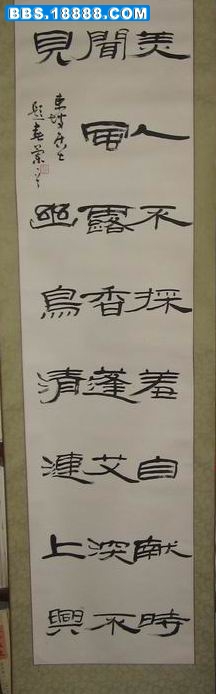 BBS.18888.COM
美人不採羞自献時
聞風露香蓬艾深不
見
東坡居士
題春蘭
幽鳥清漣上興